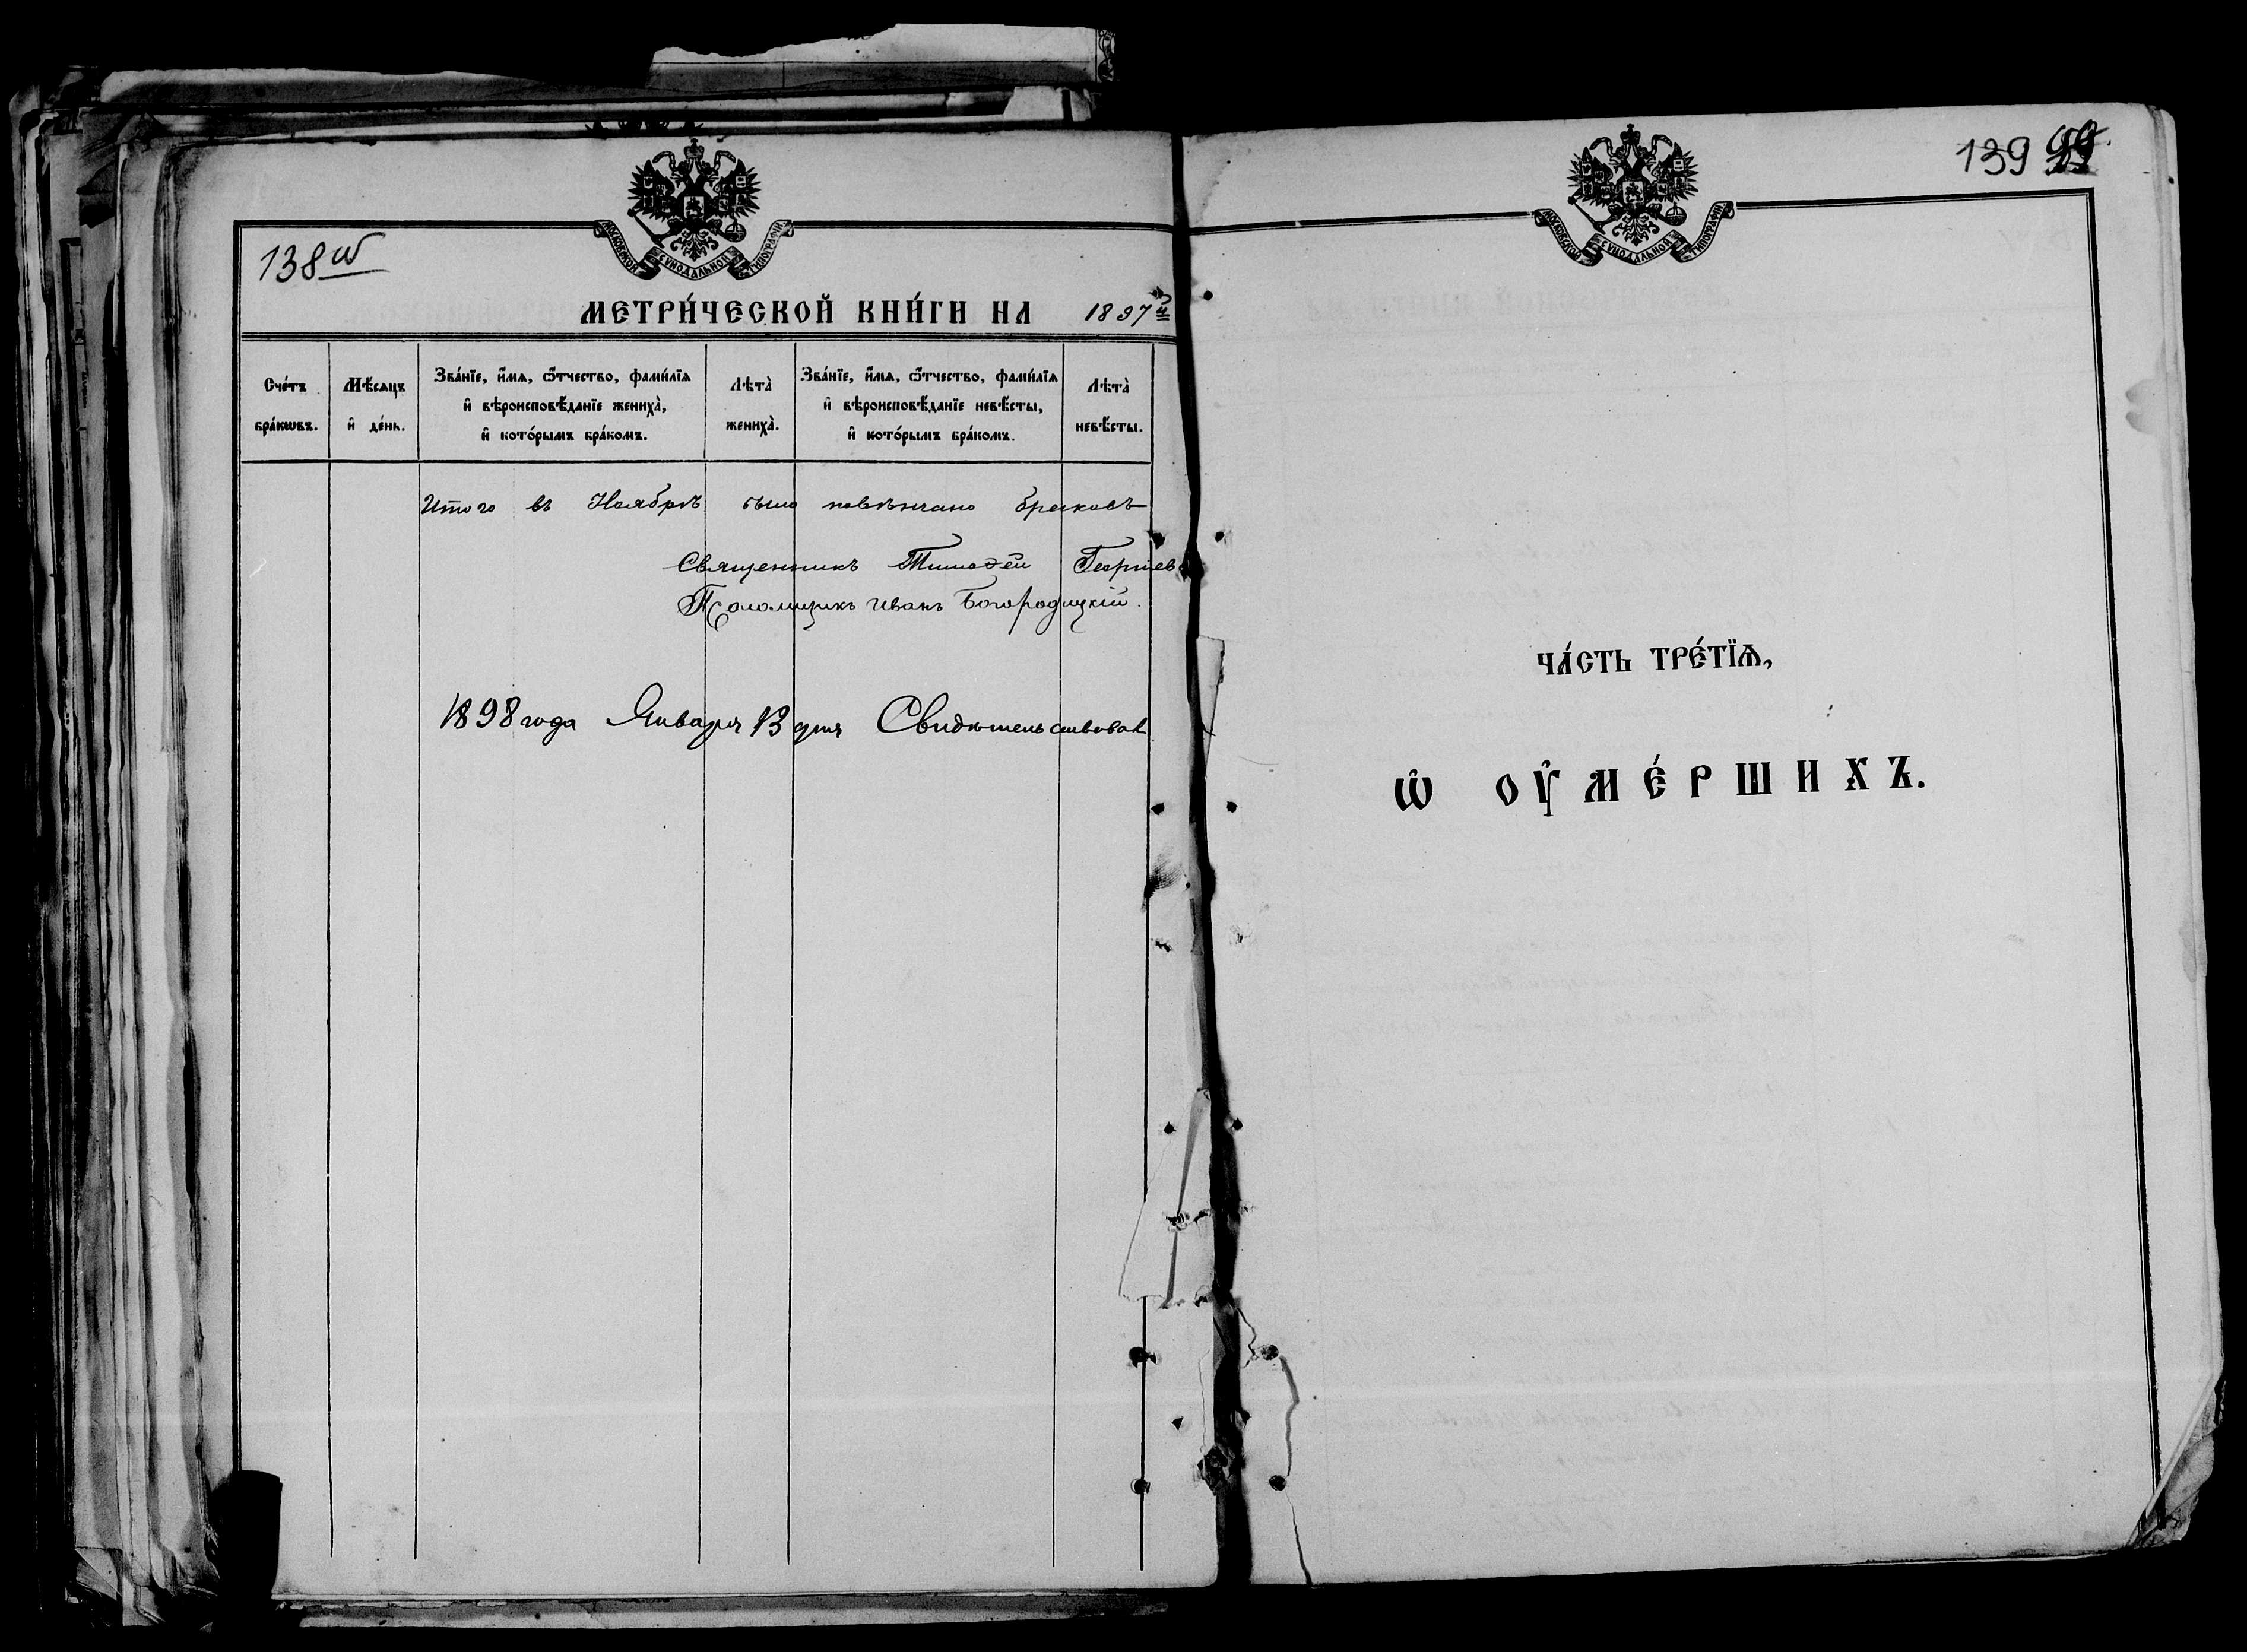 МОСКОВСКОЙ СѴНОДАЛЬНОЙ ТИПОГРАФІИ
138 об
МЕТРИ́ЧЕСКОЙ КНИ́ГИ НА 1897й
Сче́тъ бра́кωвъ.
Мѣ́сяцъ и҆ де́нь.
Зва́нїе, и҆́мѧ, ѻ҆́тчество, фами́лїѧ
и҆ вѣроисповѣ́данїе женихà,
и҆ кото́рымъ бра́комъ.
Лѣтà
женихà.
Зва́нїе, и҆́мѧ, ѻ҆́тчество, фами́лїѧ
и҆ вѣроисповѣ́данїе невѣ́сты,
и҆ кото́рымъ бра́комъ.
Лѣтà
невѣ́сты.
Итого въ Ноябрѣ было повѣнчано браковъ
Священникъ Тимоѳей Георгіев
Псаломщикъ Иванъ Богородицкій.
1898 года Января 13 дня Свидѣтельствовал
МОСКОВСКОЙ СѴНОДАЛЬНОЙ ТИПОГРАФІИ
139
ЧА́СТЬ ТРЕ́ТЇѦ,
Ѡ҆ ОУ҆МЕ́РШИХЪ.